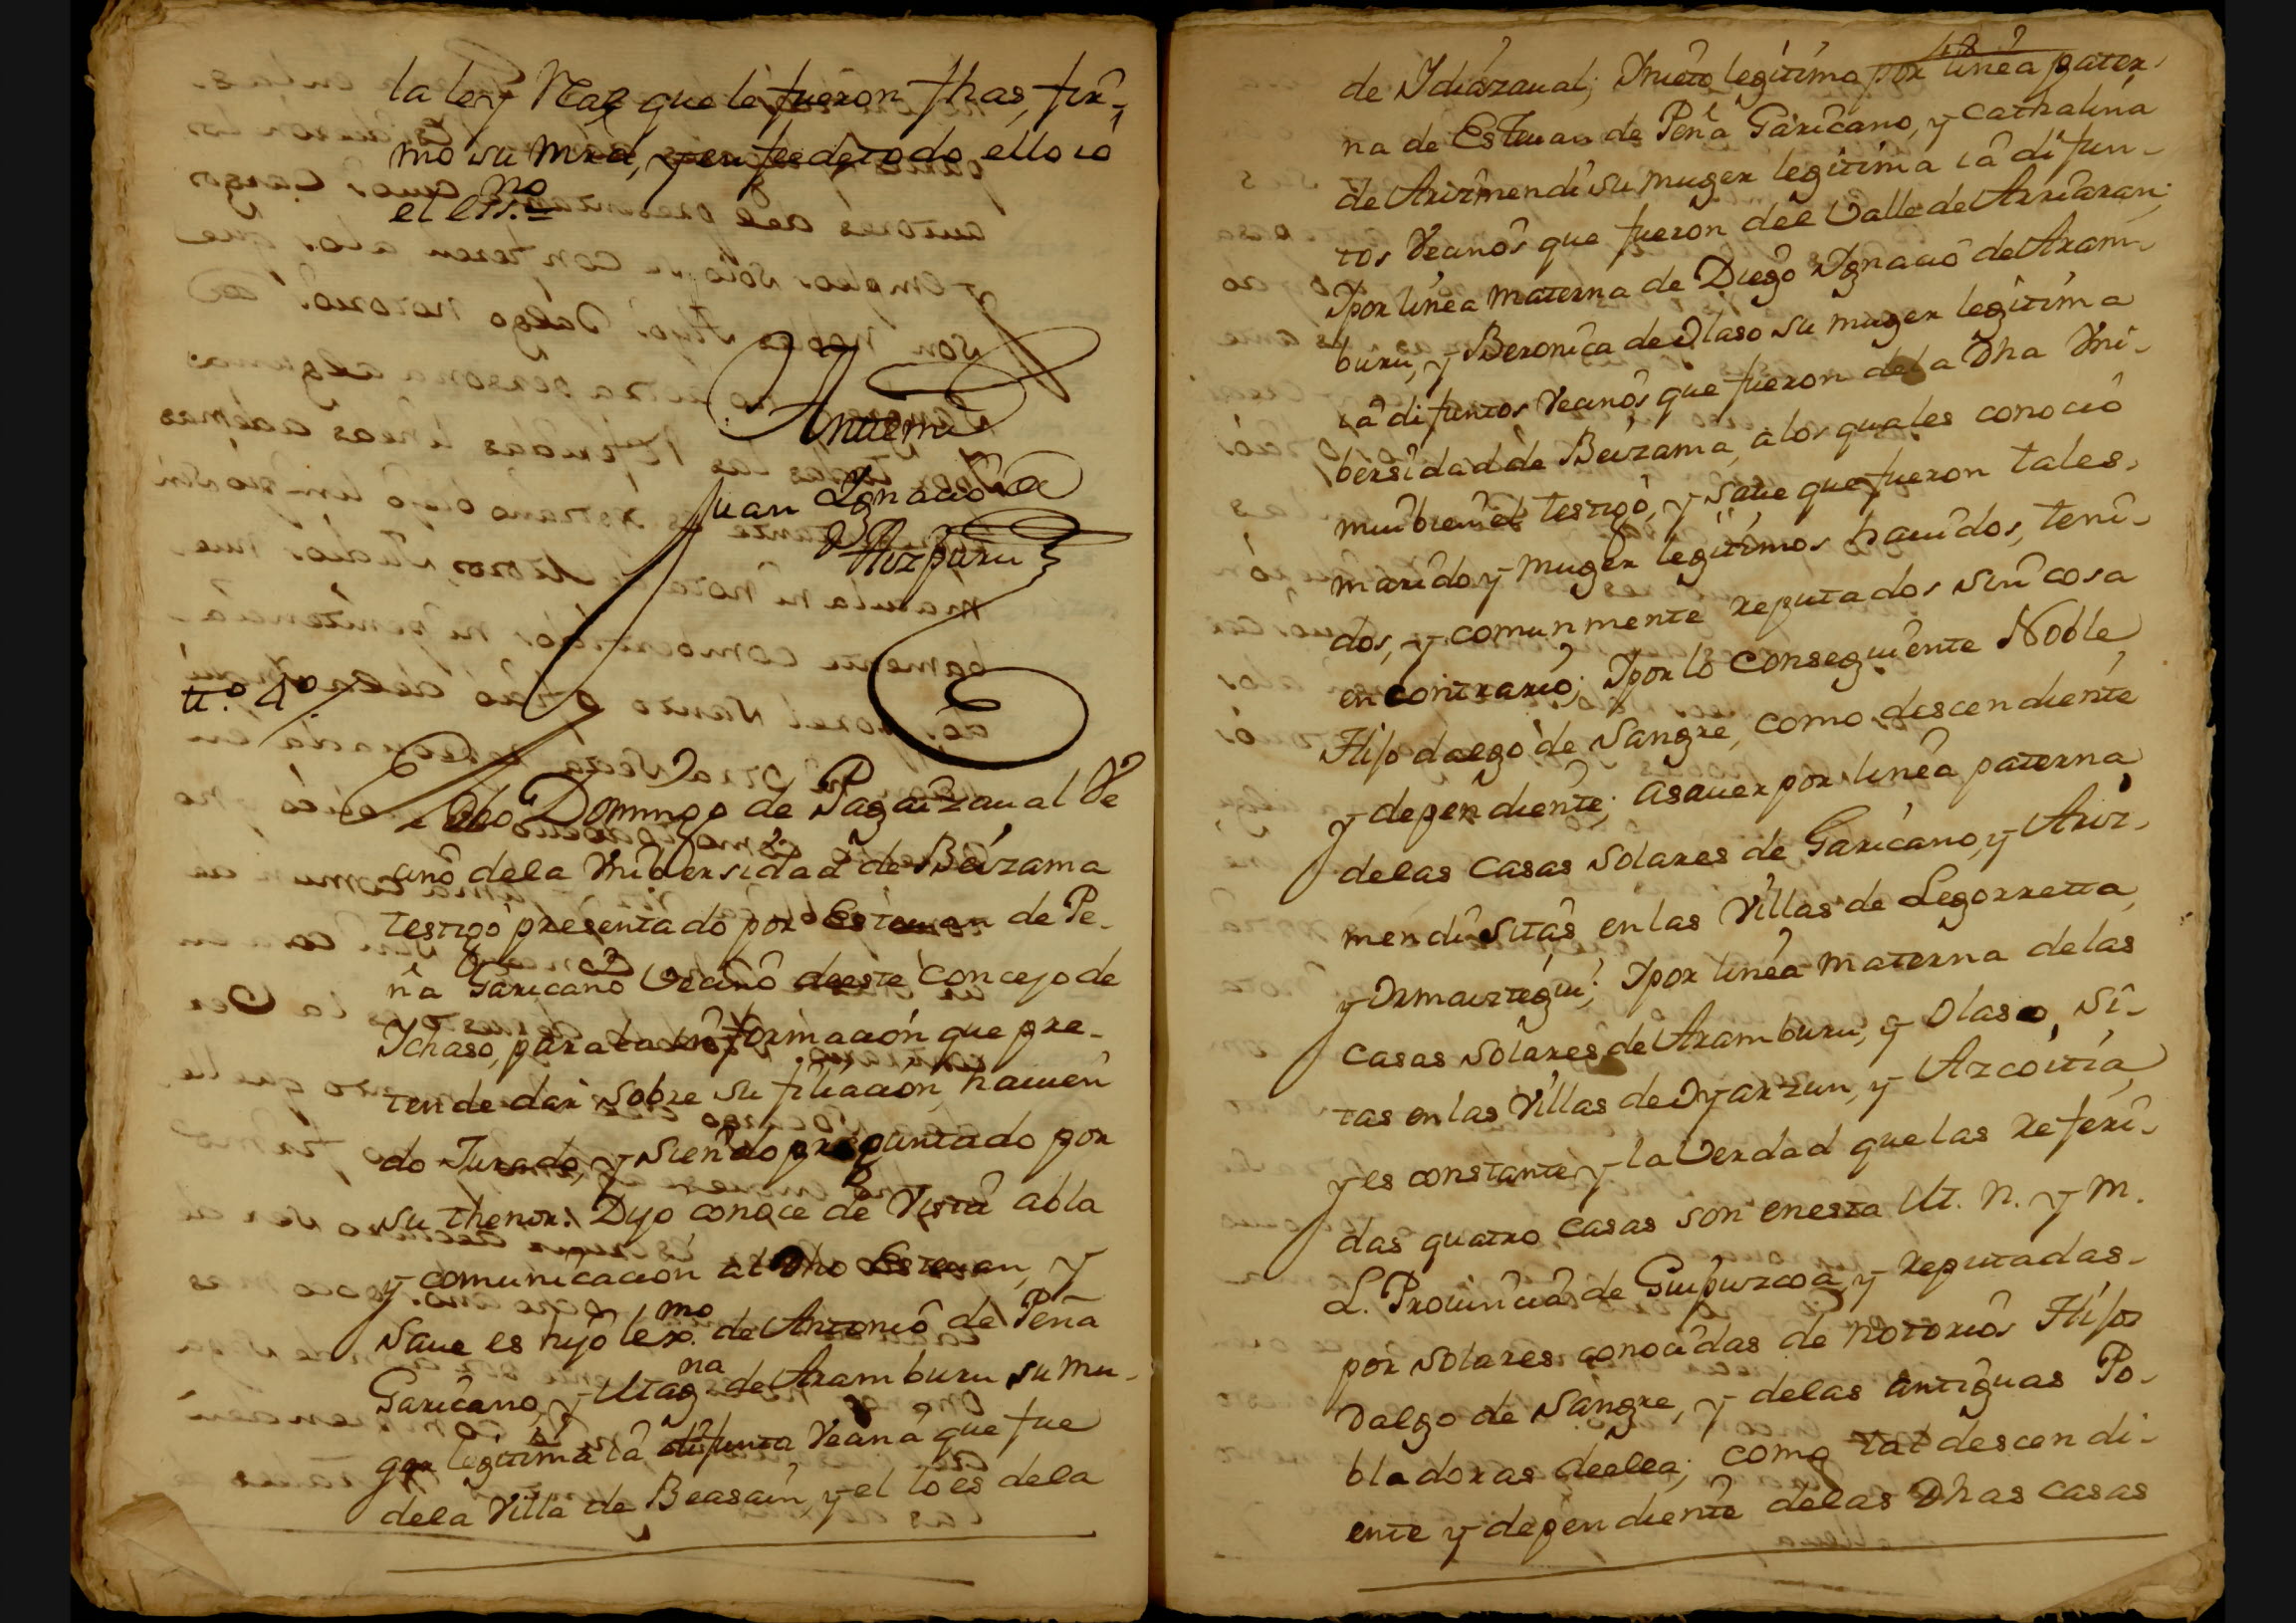 la le y Nat que le fueron fhas, fir-
mó su mrd, y en fee de todo ello ió
el essno
Antemi
Juan Ignacio de
Aizpuru
tt.º 4º
El dho Domingo de Pagaizaual Ve
cinó dela Vnibersidad de Beizama
testigo presentado por Esteuan de Pe-
ña Garicano Vecinó deeste Concejo de
Ichaso, para la informacion que pre-
tende dar sobre su filiacion, hauien
do Jurado, y siendo preguntado por
su thenor: Dijo conoce de Vista abla
y comunicacion al dho Esteuan, y
Saue es hijo lexmo. de Antonio de Peña
Garicano, y Magna de Aramburu su mu-
ger legitima iá difunta Vecina que fue
dela Villa de Beasain, y el lo es dela
de Idiazaual; Inieto legitimo por linea pater-
na de Esteuan de Peña Garicano, y Cathalina
de Arizmendi su muger legitima iá difun-
tos Vecinos que fueron del Valle de Arriaran;
Ipor linea materna de Diego Ignacio de Aram-
buru, y Beronica de Olaso su muger legitima
iá difuntos Vecinos que fueron dela Dha Vni-
bersidad de Beizama, a los quales conoció
mui bien el testigo, y Saue que fueron tales
marido y muger legitimos hauidos, teni-
dos, y comunmente reputados sin cosa
en contrario; Ipor lo Conseguiente Noble
Hijo dalgo de Sangre, como descendiente
y dependiente; asauer por linea paterna
delas Casas Solares de Garicano, y Ariz-
mendi Sitas en las Villas de Legorretta,
y Ormaiztegui; Ipor linea materna delas
Casas Solares de Aramburu, y Olaso, Si-
tas en las Villas de Oyarzun, y Azcoitia,
y es constante y la Verdad que las referi-
das quatro Casas son enesta M. N. y M.
L. Prouincia de Guipuzcoa, y reputadas
por Solares conocidas de notorios Hijos
Dalgo de Sangre, y delas antiguas Po-
bladoras deella; como tal descendi-
ente y dependiente delas Dhas Casas